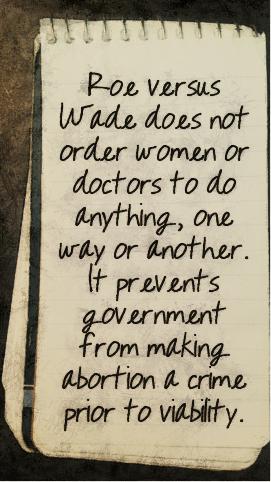 Roe versus
Wade does not
order women or
doctors to do
anything, one
way or another.
It prevents
government
from making
abortion a crime
prior to viability.